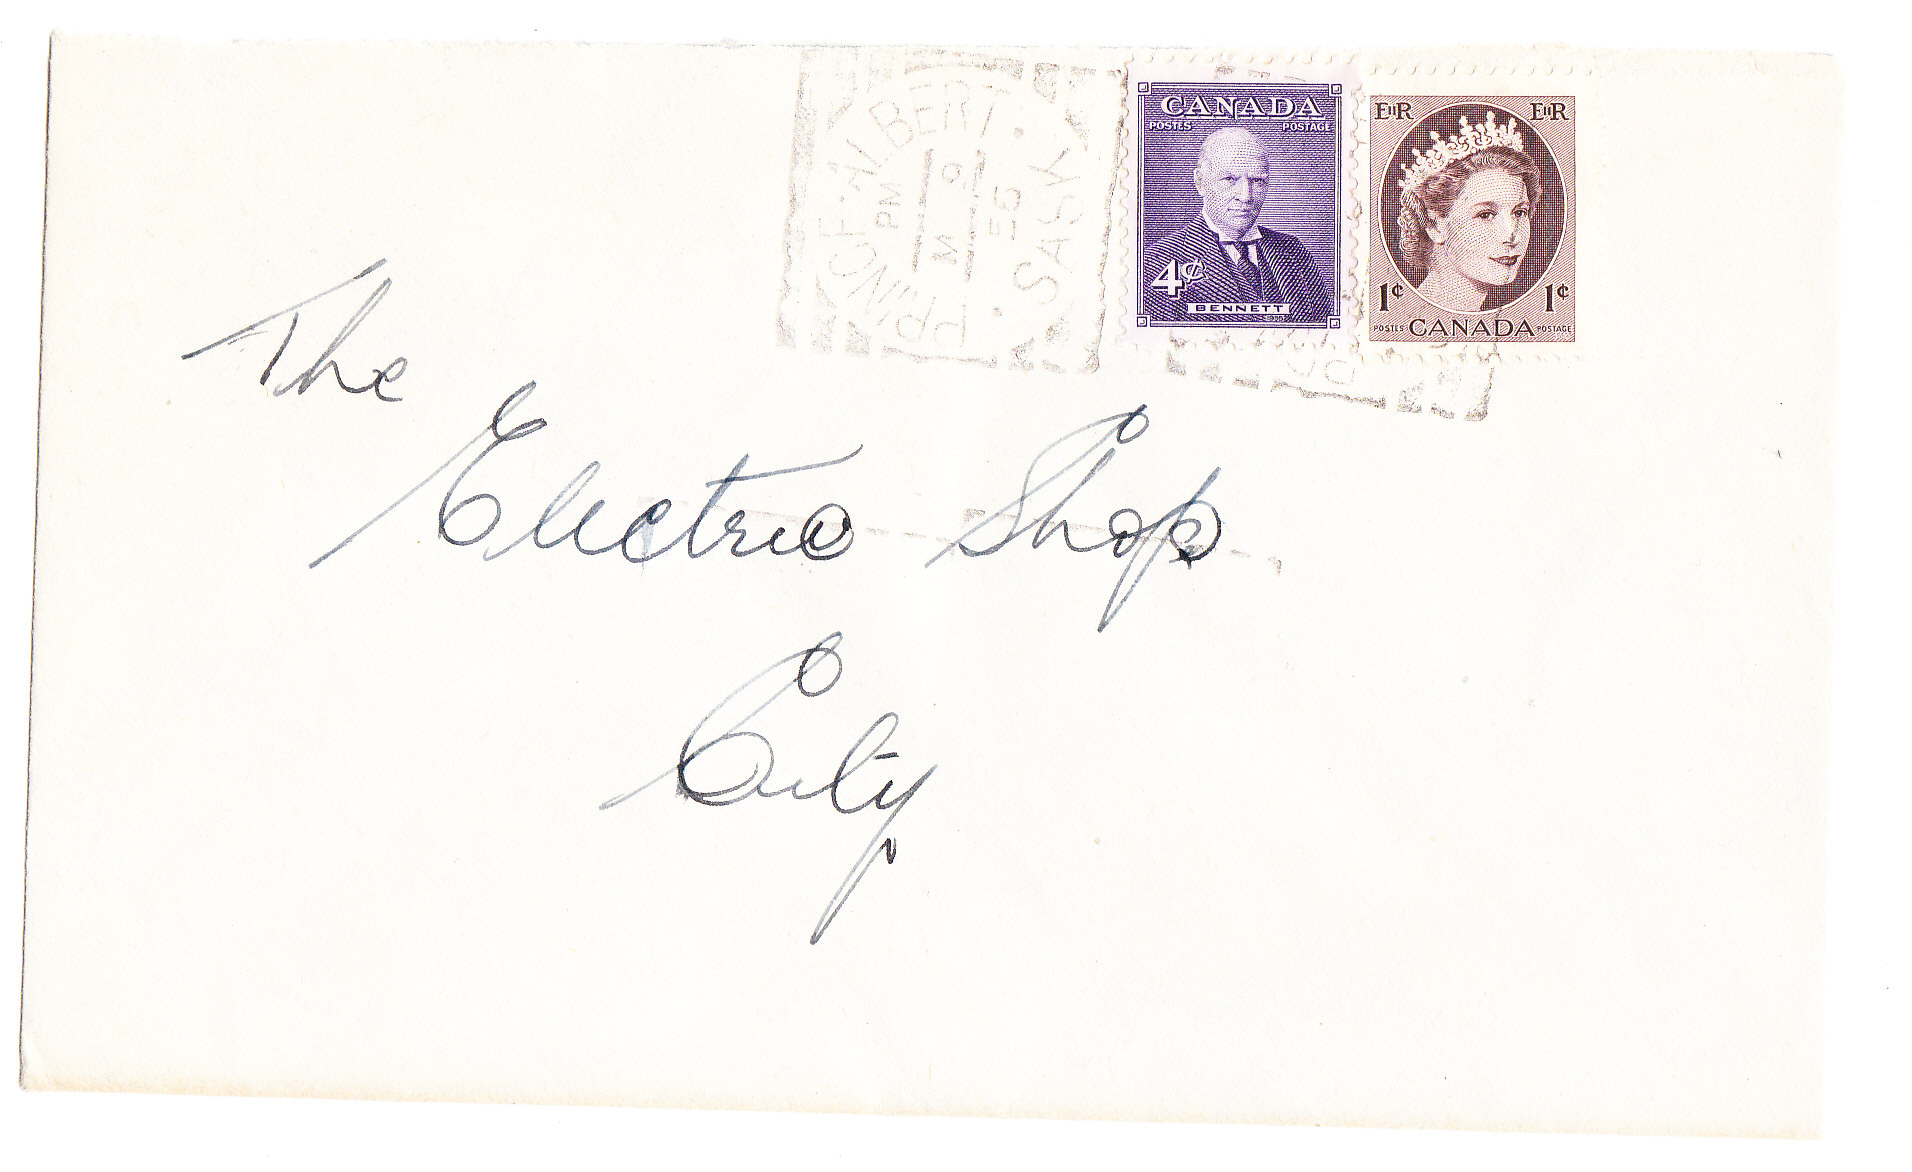 PRINCE-ALBERT
PM
M
56
SASK
CANADA
POSTES POSTAGE
4¢
BENNETT
1955
EIIR EIIR
1¢ 1¢
POSTES CANADA POSTAGE
The
Electric Shop
City